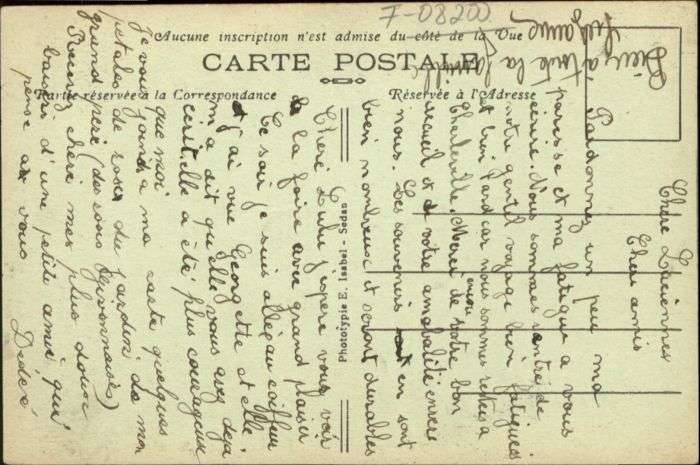 7-08200
Aucune inscription n'est admise du côté de la Vue
CARTE POSTALE
Partie réservée à la Correspondance
Réservée à l'Adresse
Phototypie E. Isabel - Sedan
Chère Lucienne
Cher amis
Pardonnez un peu ma
paresse et ma fatigue a vous
écrire. Nous sommes rentrés de
notre gentil voyage bien fatigués
et bien tard car nous sommes restés a
Charleville. Merci encore de votre bon
accueil et de votre amabilité envers
nous. Les souvenirs en sont
bien nombreux et seront durables
Chère Lulu j'espère vous voir
a la foire avec grand plaisir
Ce soir je suis allée au coiffeur
et j'ai vue Georgette et elle
m'a dit qu'elle vous avez déja
écrit, elle a été plus courageuse
que moi
Je vous joind a ma carte quelques
petales de roses du jardin de mon
grand père (des sous Givonnaises)
Recevez chère mes plus doux
baisers d'une petite amie qui
pense a vous
Dédée
Bien a toute la famille
Suzanne